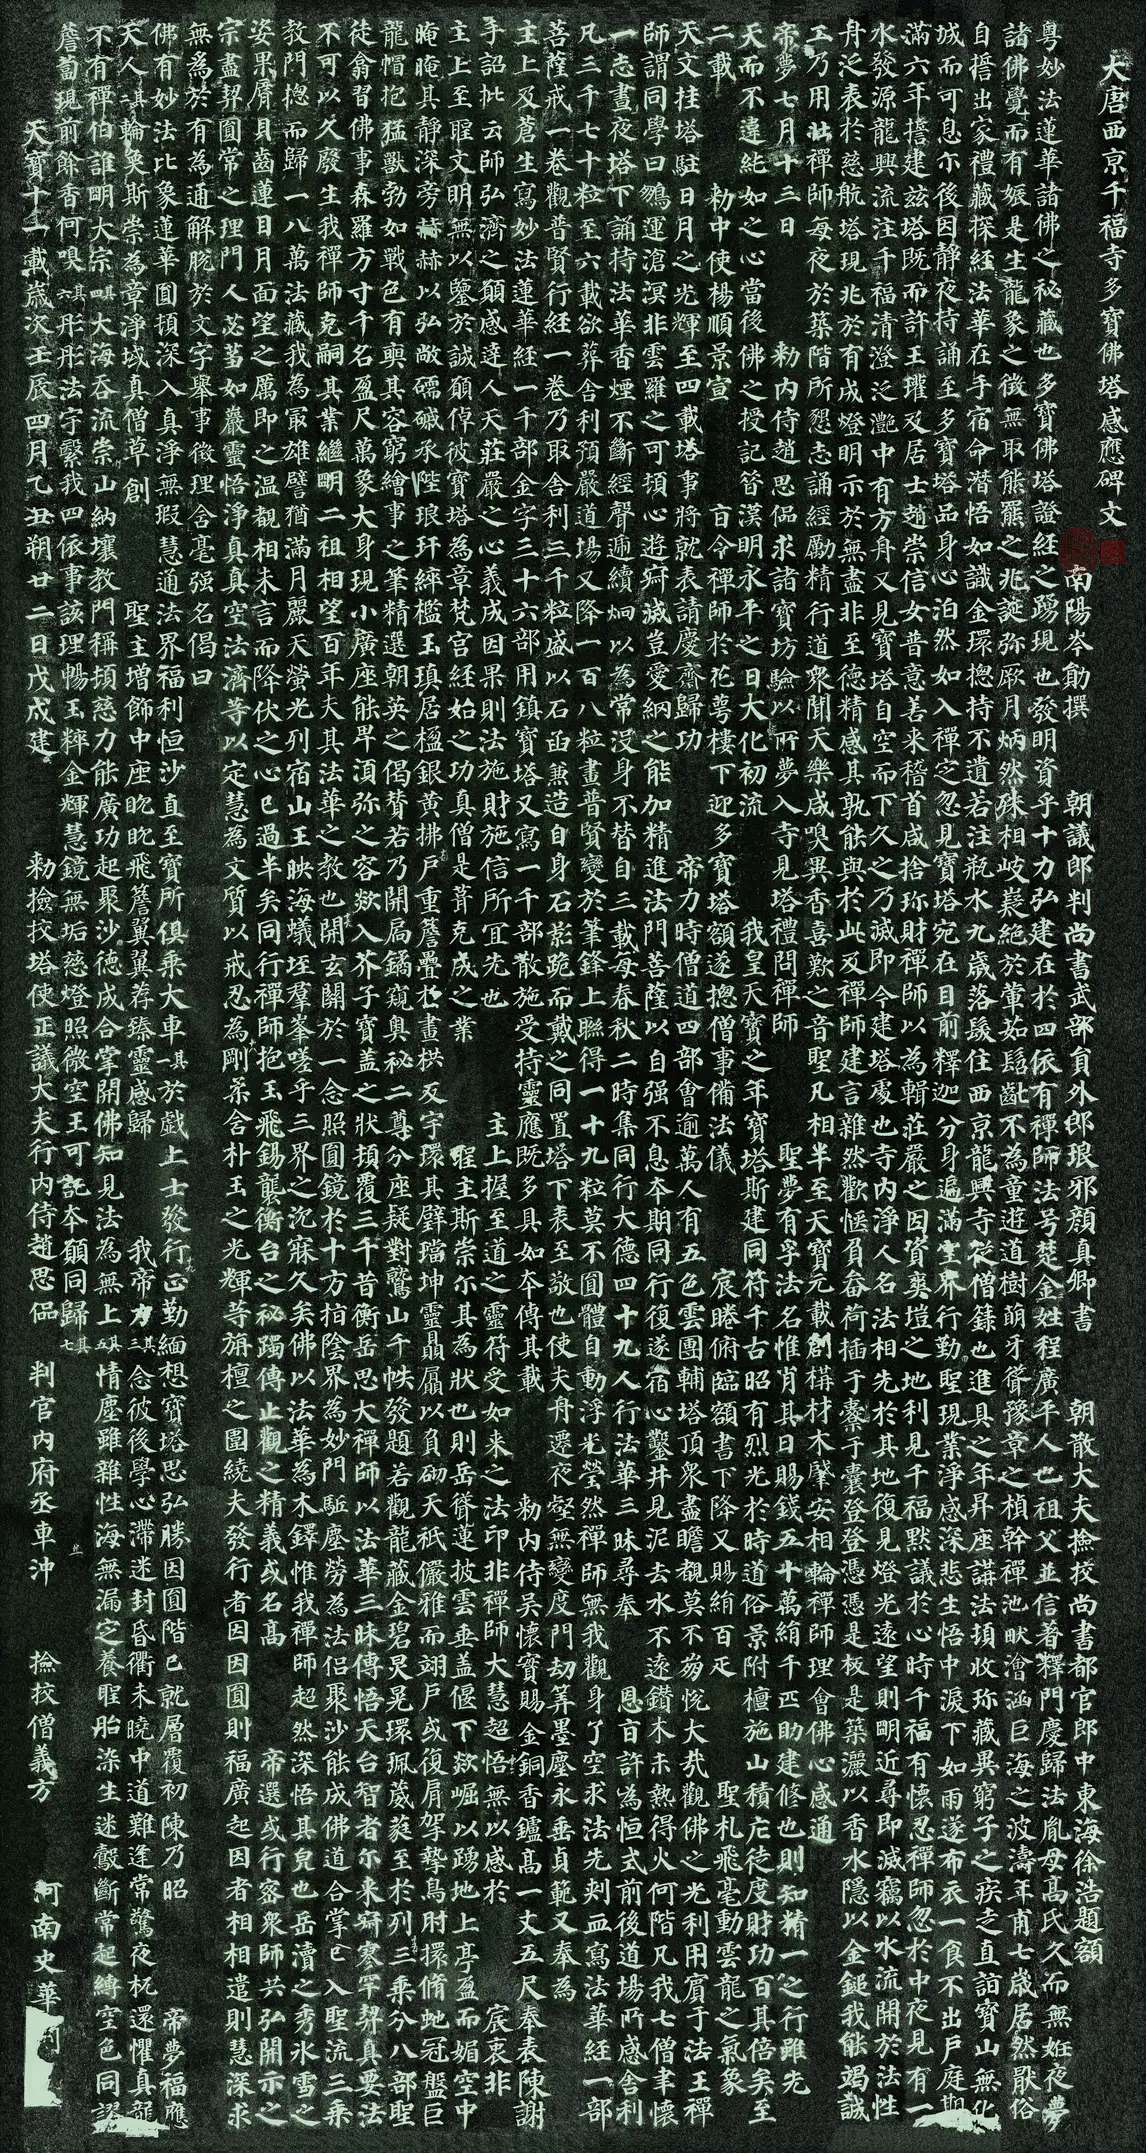 大唐西京千福寺多寶佛塔感應碑文
南陽岑勛撰 朝議郎判尚書武部員外郎琅邪顏真卿書 朝散大夫撿挍尚書都官郎中東海徐浩題額
粵妙法蓮華諸佛之祕藏也多寶佛塔證經之踴現也發明資乎十力弘建在於四依有禪師法号楚金姓程廣平人也祖父並信著釋門慶歸法胤母高氏久而無姙夜夢
諸佛覺而有娠是生龍象之徵無取熊羆之兆誕弥厥月炳然殊相岐嶷絕於葷茹髫齔不為童遊道樹萌牙聳豫章之楨幹禪池畎澮涵巨海之波濤年甫七歲居然猒俗
自誓出家禮藏探經法華在手宿命潛悟如識金環揔持不遺若注瓶水九歲落髮住西京龍興寺從僧籙也進具之年昇座講法頓收珍藏異窮子之疾走直詣寶山無化
城而可息尒後因靜夜持誦至多寶塔品身心泊然如入禪定忽見寶塔宛在目前釋迦分身遍滿空界行勤聖現業淨感深悲生悟中淚下如雨遂布衣一食不出戶庭期
滿六年誓建茲塔既而許王瓘及居士趙崇信女普意善來稽首咸捨珍財禪師以為輯莊嚴之因資爽塏之地利見千福默議於心時千福有懷忍禪師忽於中夜見有一
水發源龍興流注千福清澄泛灔中有方舟又見寶塔自空而下久之乃滅即今建塔處也寺內淨人名法相先於其地復見燈光遠望則明近尋即滅竊以水流開於法性
舟泛表於慈航塔現兆於有成燈明示於無盡非至德精感其孰能與於此及禪師建言雜然歡愜負畚荷插于橐于囊登登憑憑是板是築灑以香水隱以金鎚我能竭誠
工乃用壯禪師每夜於築階所懇志誦經勵精行道眾聞天樂咸嗅異香喜歎之音聖凡相半至天寶元載創構材木肇安相輪禪師理會佛心感通
帝夢七月十三日 敕內侍趙思偘求諸寶坊驗以所夢入寺見塔禮問禪師 聖夢有孚法名惟肖其日賜錢五十萬絹千匹助建修也則知精一之行雖先
天而不違純如之心當後佛之授記昔漢明永平之日大化初流 我皇天寶之年寶塔斯建同符千古昭有烈光於時道俗景附檀施山積庀徒度財功百其倍矣至
二載 敕中使楊順景宣 旨令禪師於花萼樓下迎多寶塔額遂揔僧事備法儀 宸睠俯臨額書下降又賜絹百疋 聖札飛毫動雲龍之氣象
天文挂塔駐日月之光輝至四載塔事將就表請慶齋歸功 帝力時僧道四部會逾萬人有五色雲團輔塔頂眾盡瞻覩莫不崩悅大哉觀佛之光利用賓于法王禪
師謂同學曰鵬運滄溟非雲羅之可頓心遊寂滅豈愛網之能加精進法門菩薩以自强不息本期同行復遂宿心鑿井見泥去水不遠鑽木未熱得火何階凡我七僧聿懷
一志晝夜塔下誦持法華香煙不斷經聲遞續炯以為常沒身不替自三載每春秋二時集同行大德四十九人行法華三昧尋奉 恩旨許為恒式前後道場所感舍利
凡三千七十粒至六載欲葬舍利預嚴道場又降一百八粒畫普賢變於筆鋒上聯得一十九粒莫不圓體自動浮光瑩然禪師無我觀身了空求法先刺血寫法華經一部
菩薩戒一卷觀普賢行經一卷乃取舍利三千粒盛以石函兼造自身石影跪而戴之同置塔下表至敬也使夫舟遷夜壑無變度門劫筭墨塵永垂貞範又奉為
主上及蒼生寫妙法蓮華經一千部金字三十六部用鎮寶塔又寫一千部散施受持靈應既多具如本傳其載 敕內侍吳懷實賜金銅香鑪高一丈五尺奉表陳謝
手詔批云師弘濟之願感達人天莊嚴之心義成因果則法施財施信所宜先也 主上握至道之靈符受如來之法印非禪師大慧超悟無以感於 宸衷非
主上至聖文明無以鑒於誠願倬彼寶塔為章梵宮經始之功真僧是葺克成之業 聖主斯崇尒其為狀也則岳聳蓮披雲垂蓋偃下欻崛以踴地上亭盈而媚空中
晻晻其靜深旁赫赫以弘敞礝磩承陛琅玕綷檻玉瑱居楹銀黃拂戶重簷疊於畫栱反宇環其璧璫坤靈贔屭以負砌天祇儼雅而翊戶或復肩拏摯鳥肘擐脩虵冠盤巨
龍帽抱猛獸勃如戰色有奭其容窮繪事之筆精選朝英之偈贊若乃開扃鐍窺奧祕二尊分座疑對鷲山千帙發題若觀龍藏金碧炅晃環珮葳蕤至於列三乘分八部聖
徒翕習佛事森羅方寸千名盈尺萬象大身現小廣座能卑湏弥之容欻入芥子寶蓋之狀頓覆三千昔衡岳思大禪師以法華三昧傳悟天台智者尒來寂寥罕契真要法
不可以久廢生我禪師克嗣其業繼明二祖相望百年夫其法華之教也開玄關於一念照圓鏡於十方指陰界為妙門駈塵勞為法侶聚沙能成佛道合掌已入聖流三乘
教門揔而歸一八萬法藏我為冣雄譬猶滿月麗天螢光列宿山王映海蟻垤羣峯嗟乎三界之沉寐久矣佛以法華為木鐸惟我禪師超然深悟其皃也岳瀆之秀冰雪之
姿果脣貝齒蓮目月面望之厲即之温覩相未言而降伏之心已過半矣同行禪師抱玉飛錫襲衡台之祕躅傳止觀之精義或名高 帝選或行密眾師共弘開示之
宗盡契圓常之理門人苾芻如巖靈悟淨真真空法濟等以定慧為文質以戒忍為剛柔含朴玉之光輝等旃檀之圍繞夫發行者因因圓則福廣起因者相相遣則慧深求
無為於有為通解脫於文字舉事徵理含毫强名偈曰
佛有妙法比象蓮華圓頓深入真淨無瑕慧通法界福利恒沙直至寶所俱乘大車其一於戲上士發行正勤緬想寶塔思弘勝因圓階已就層覆初陳乃昭 帝夢福應
天人其二輪奐斯崇為章淨域真僧草創 聖主增飾中座眈眈飛簷翼翼荐臻靈感歸 我帝力其三念彼後學心滯迷封昏衢未曉中道難逢常驚夜杌還懼真龍
不有禪伯誰明大宗其四大海吞流崇山納壤教門稱頓慈力能廣功起聚沙德成合掌開佛知見法為無上其五情塵雖雜性海無漏定養聖胎染生迷鷇斷常起縛空色同謬
薝蔔現前餘香何嗅其六彤彤法宇繄我四依事該理暢玉粹金輝慧鏡無垢慈燈照微空王可託本願同歸其七
天寶十一載歲次壬辰四月乙丑朔廿二日戊戌建 敕撿挍塔使正議大夫行內侍趙思偘 判官內府丞車沖 撿挍僧義方 河南史華刻